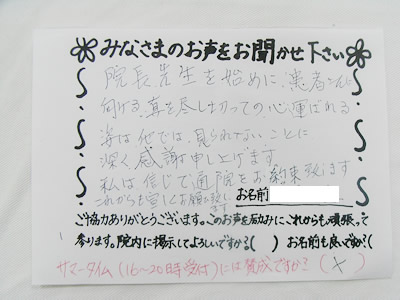 みなさまのお声をお聞かせ下さい
院長先生を始めに、患者さんに
向ける、真を尽しきっての心運ばれる
姿は他では、見られないことに
深く感謝申し上げます
私は信じて通院をお約束致します
これからも宜しくお願い致します
お名前
ご協力ありがとうございます。このお声を励みにこれからも頑張って
参ります。院内に掲示してよろしいですか?( ) お名前も良いですか?(
サマータイム(16~20時受付)には賛成ですか?(×)